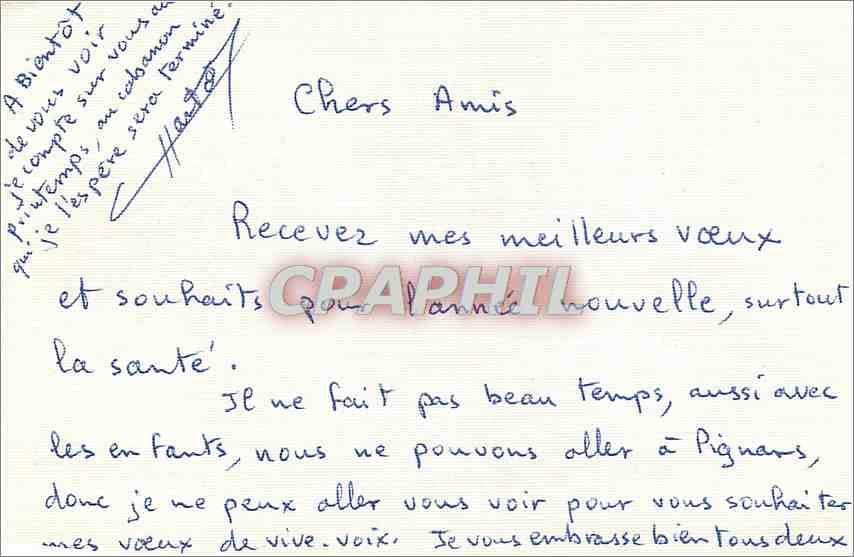 Chers Amis
Recevez mes meilleurs vœux
et souhaits pour l'année nouvelle, surtout
la santé.
Il ne fait pas beau temps, aussi avec
les enfants, nous ne pouvons aller à Pignans,
donc je ne peux aller vous voir pour vous souhaiter
mes vœux de vive-voix. Je vous embrasse bien tous deux
A Bientôt
de vous voir
je compte sur vous au
Printemps, au cabanon
qui je l'espère sera terminé.
CPAPHIL